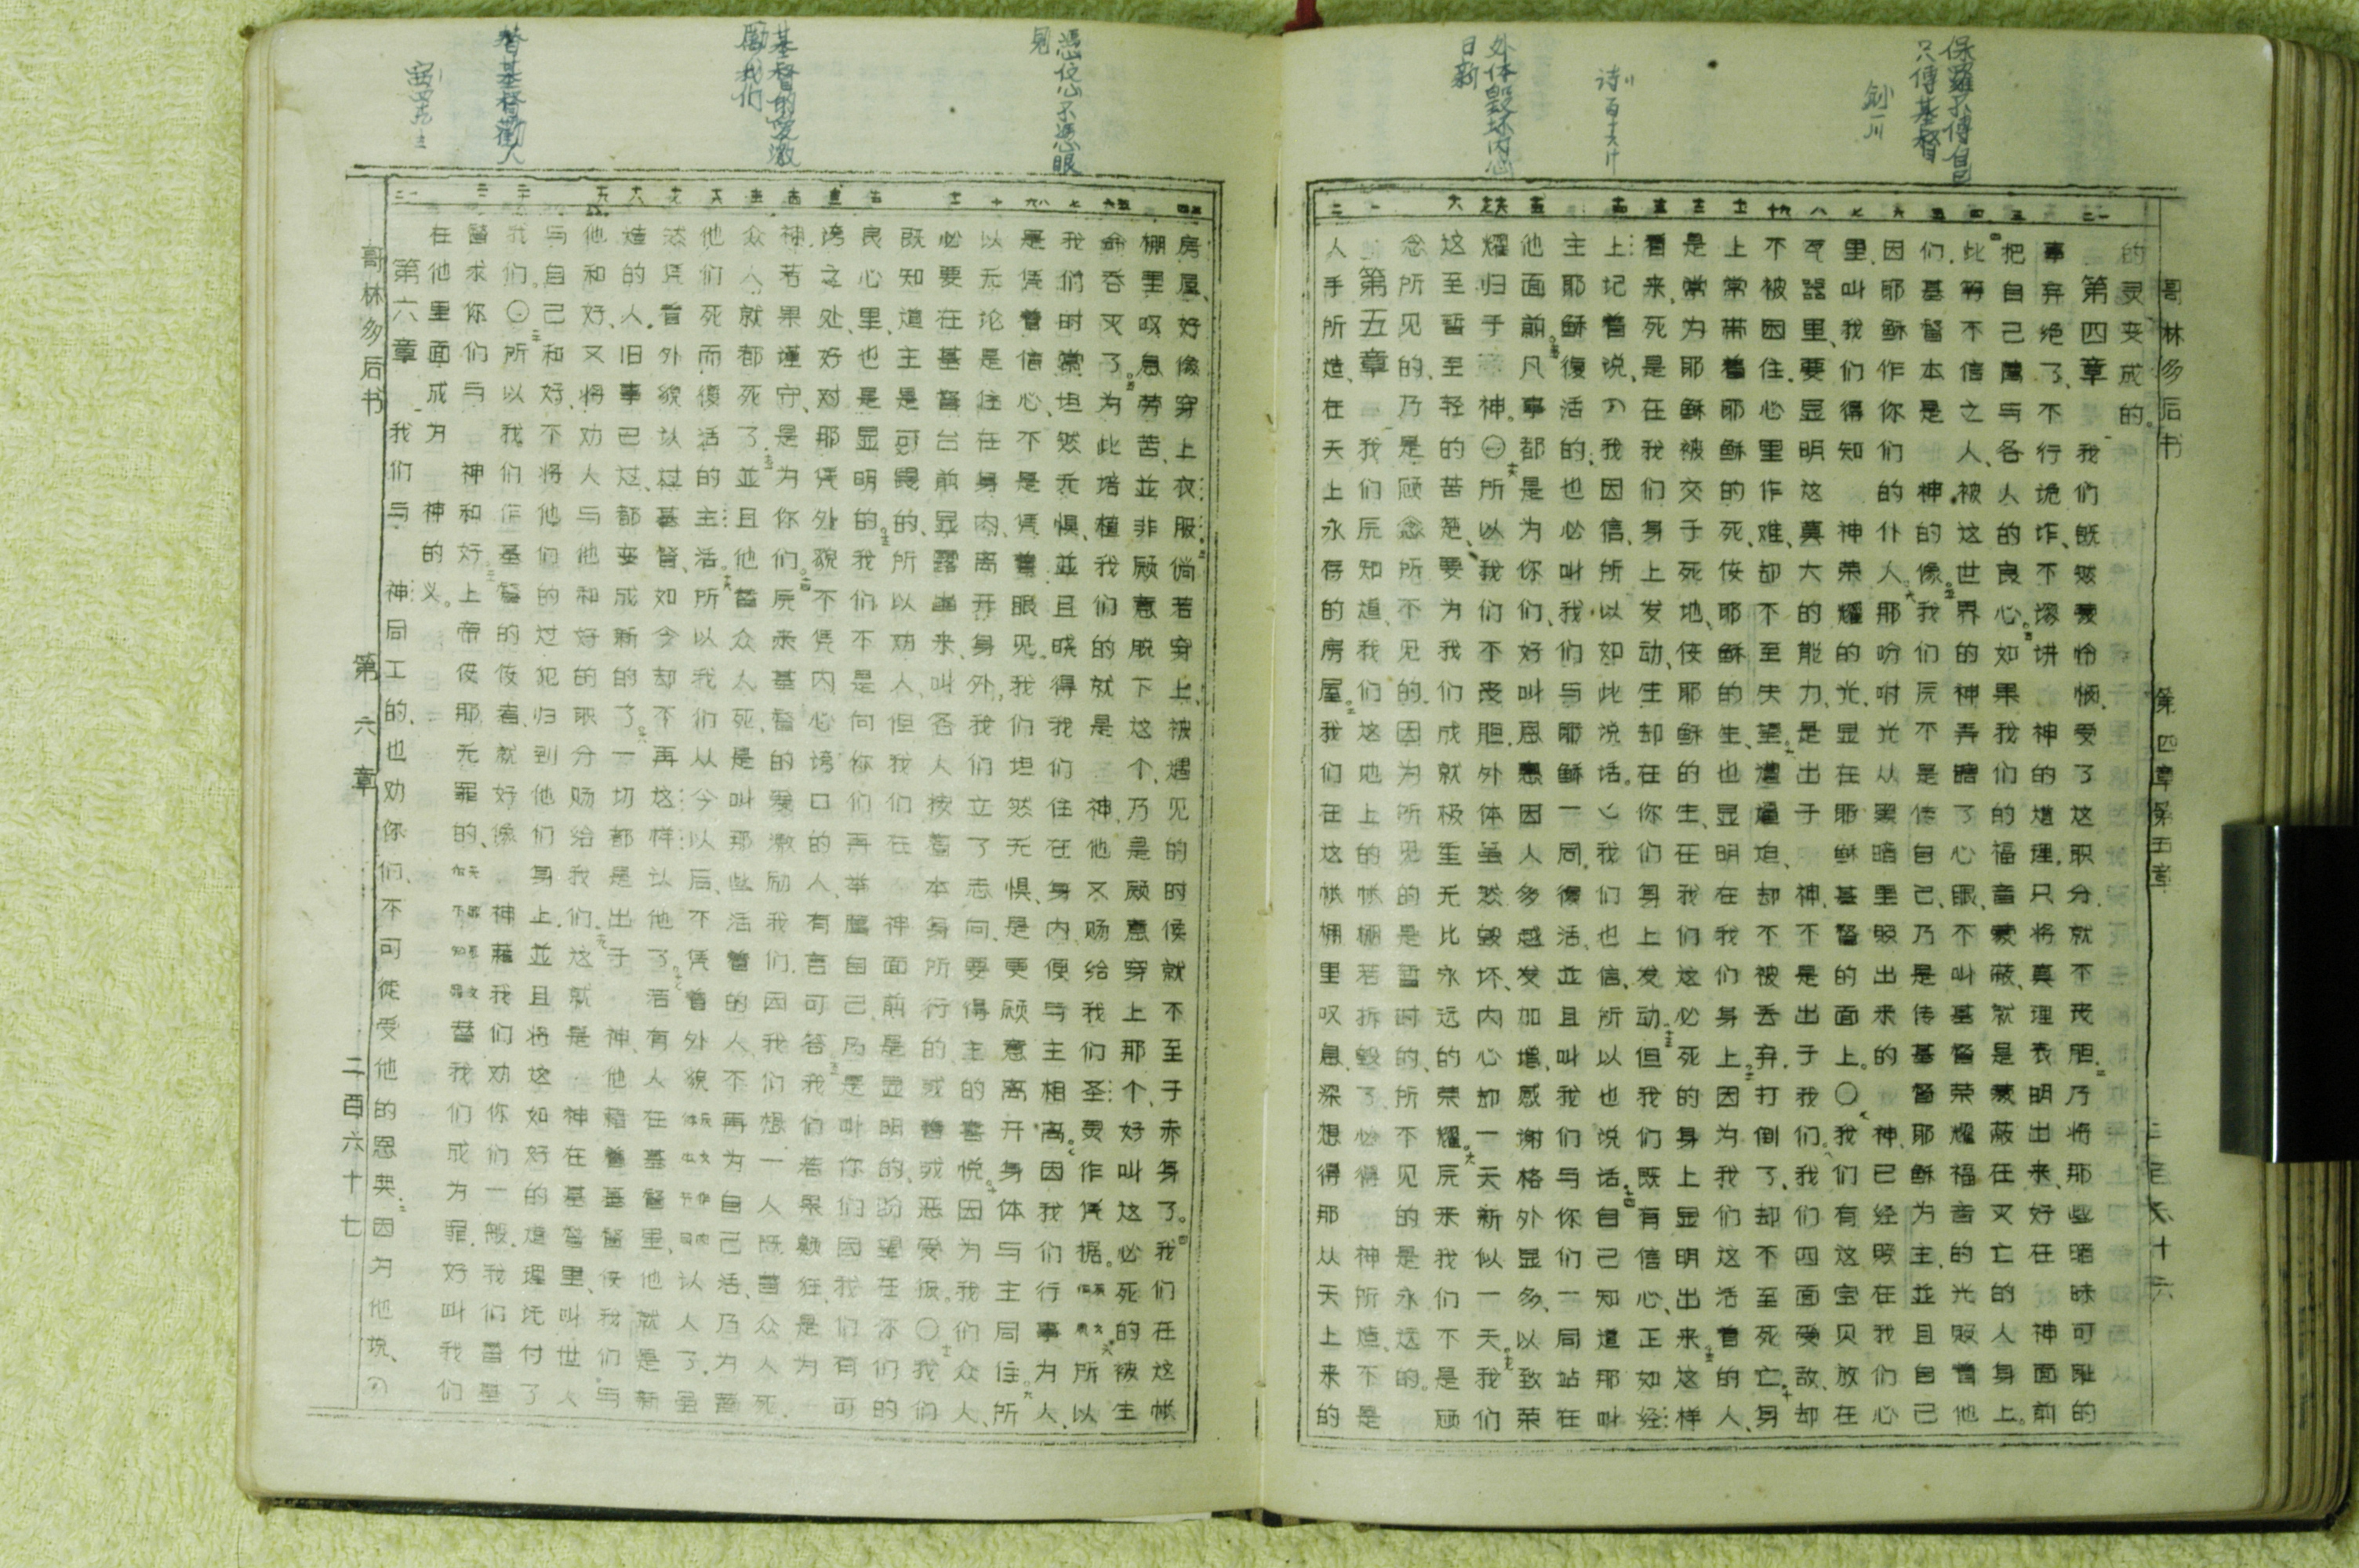 保羅不傳自己
只傳基督
創一
诗百十六
外体毀坏内心
日新
哥林多后书 第四章第五章 二百六十六
的灵变成的。
第四章 我们既然蒙怜悯、受了这职分、就不丧胆、乃将那些暗昧可耻的
事弃绝了、不行诡诈、不谬讲 神的道理。只将真理表明出来、好在 神面前
把自己荐与各人的良心。如果 我们的福音蒙蔽、就是蒙蔽在灭亡的人身上。
此等不信之人、被这世界的神弄瞎了心眼、不叫基督荣耀福音的光照着他
们、基督本是 神的像。我们原不是传自己、乃是传基督耶稣为主、並且自己
因耶稣作你们的仆人。那吩咐光从黑暗里照出来的 神、已经照在我们心
里、叫我们得知 神荣耀的光、显在耶稣基督的面上。〇我们有这宝贝放在
瓦器里、要显明这莫大的能力、是出于 神、不是出于我们。我们四面受敌、却
不被困住、心里作难、却不至失望。遭逼迫、却不被丢弃、打倒了、却不至死亡、身
上常带着耶稣的死、使耶稣的生、也显明在我们身上。因为我们这活着的人、
是常为耶稣被交于死地、使耶稣的生、在我们这必死的身上显明出来。这样
看来、死是在我们身上发动、生却在你们身上发动。但我们既有信心、正如经
上记着说、我因信、所以如此说话。我们也信、所以也说话。自己知道那叫
主耶稣復活的、也必叫我们与耶稣一同復活、並且叫我们与你们一同站在
他面前。凡事都是为你们、好叫恩惠因人多越发加增、感谢格外显多、以致荣
耀归于 神。〇所以我们不丧胆、外体虽然毁坏、内心却一天新似一天。我们
这至暂至轻的苦楚、要为我们成就极重无比永远的荣耀。原来我们不是顾
念所见的、乃是顾念所不见的、因为所见的是暂时的、所不见的是永远的。
第五章 我们原知道我们这地上的帐棚若拆毁了、必得 神所造不是
人手所造、在天上永存的房屋。我们在这帐棚里叹息、深想得那从天上来的
憑信心不憑眼
見
基督的愛激
勵我们
替基督勸人
房屋、好像穿上衣服。倘若穿上、被遇见的时候就不至于赤身了。我们在这帐
棚里叹息劳苦、並非顾意脱下这个、乃是顾意穿上那个、好叫这必死的被生
命吞灭了。为此培植我们的就是 神、他又赐给我们圣灵作凭据。所以
我们时常坦然无惧、並且晓得我们住在身内、便与主相离。因我们行事为人、
是凭着信心、不是凭着眼见。我们坦然无惧、是更顾意离开身体与主同住。所
以无论是住在身内、离开身外、我们立了志向、要得主的喜悦。因为我们众人、
必要在基督台前显露出来、叫各人按着本身所行的、或善或恶受报。〇我们
既知道主是可畏的、所以劝人、但我们在 神面前是显明的、盼望在你们的
良心里、也是显明的。我们不是向你们再举荐自己、乃是叫你们因我们有可
谤之处、好对那凭外貌不凭内心谤口的人、有言可答。我们若果颠狂、是为
神、若果谨守、是为你们。原来基督的爱激励我们、因我们想一人既替众人死、
众人就都死了、並且他替众人死、是叫那些活着的人、不再为自己活、乃为替
他们死而復活的主活。所以我们从今以后、不凭着外貌认人了、虽
然凭着外貌认过基督、如今却不再这样认他了。若有人在基督里、他就是新
造的人、旧事已过、都变成新的了。一切都是出于 神、他藉着基督使我们与
他和好、又将劝人与他和好的职分赐给我们、这就是 神在基督里叫世人
与自己和好、不将他们的过犯归到他们身上、並且将这如好的道理托付了
我们。〇所以我们作基督的使者、就好像 神藉我们劝你们一般、我们替基
督求你们与 神和好。上帝使那无罪的、替我们成为罪、好叫我们
在他里面成为 神的义。
第六章 我们与 神同工的、也劝你们、不可徒受他的恩典、因为他说、
哥林多后书 第六章 二百六十七